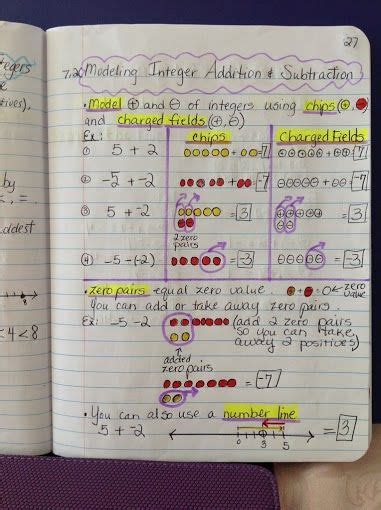 27
7.2c Modeling Integer Addition & Subtraction
tegers
• Model ⊕ and ⊖ of integers using chips (⊕, ⊖)
and charged fields (+, -)
tives),
Ex: chips Charged Fields
① 5 + 2 + = 7 + = 7
② -5 + -2 + = -7 + = -7
by
③ 5 + -2 = 3 = 3
2 zero
pairs
addest
④ -5 - (-2) = -3 = -3
• zero pairs equal zero value. + = 0 ← zero
value
You can add or take away zero pairs.
Ex: -5 - 2 (add 2 zero pairs
so you can take
away 2 positives)
-4 < 8
added
zero pairs
= -7
• You can also use a number line
5 + -2 = 3
0 3 5